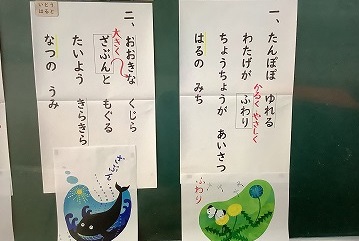 一、たんぽぽ ゆれる
わたげが ふわり
かるく やさしく
ちょうちょうが あいさつ
はるの みち
ふわり
二、おおきな くじら
大きく
ざぶんと もぐる
たいよう きらきら
なつの うみ
ざぶん
いとう
はると